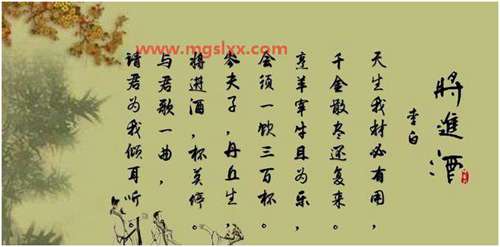 將進酒
李白
天生我材必有用，
千金散尽还复来。
烹羊宰牛且为乐，
会须一饮三百杯。
岑夫子，丹丘生，
将进酒，杯莫停。
与君歌一曲，
请君为我倾耳听。
www.mgslxx.com